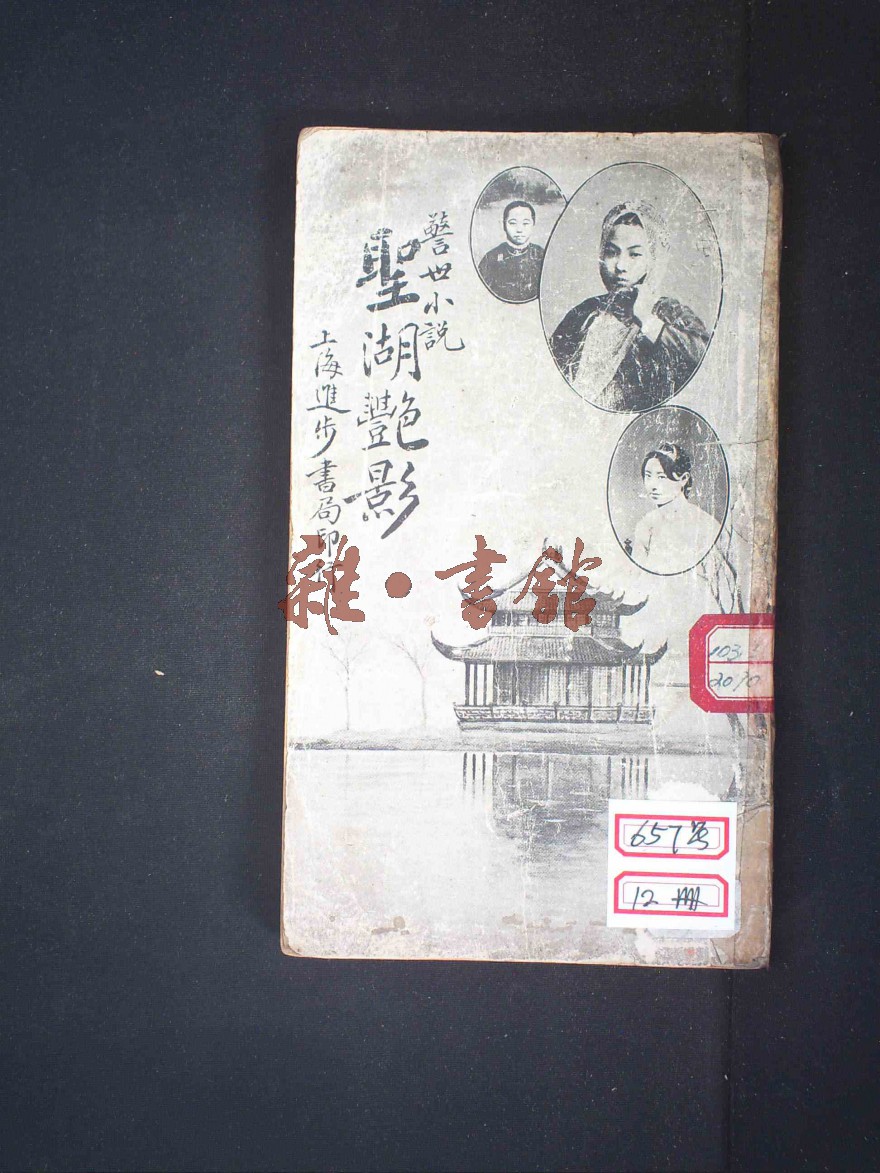 警世小説
聖湖艷影
上海進步書局印行
雜·書館
103.1
2070
657号
12冊